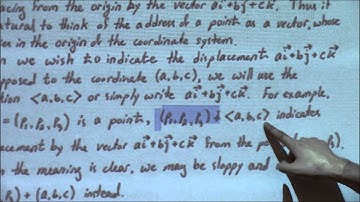 acing from the origin by the vector ai⃗+bj⃗+ck⃗. Thus it
tural to think of the address of a point as a vector, whose
es in the origin of the coordinate system.
n we wish to indicate the displacement ai⃗+bj⃗+ck⃗
pposed to the coordinate (a,b,c), we will use the
tion <a,b,c> or simply write ai⃗+bj⃗+ck⃗. For example,
= (P₁,P₂,P₃) is a point, (P₁,P₂,P₃)+<a,b,c> indicates
acement by the vector ai⃗+bj⃗+ck⃗ from the po P₃).
n the meaning is clear, we may be sloppy and
P₃)+(a,b,c) instead.